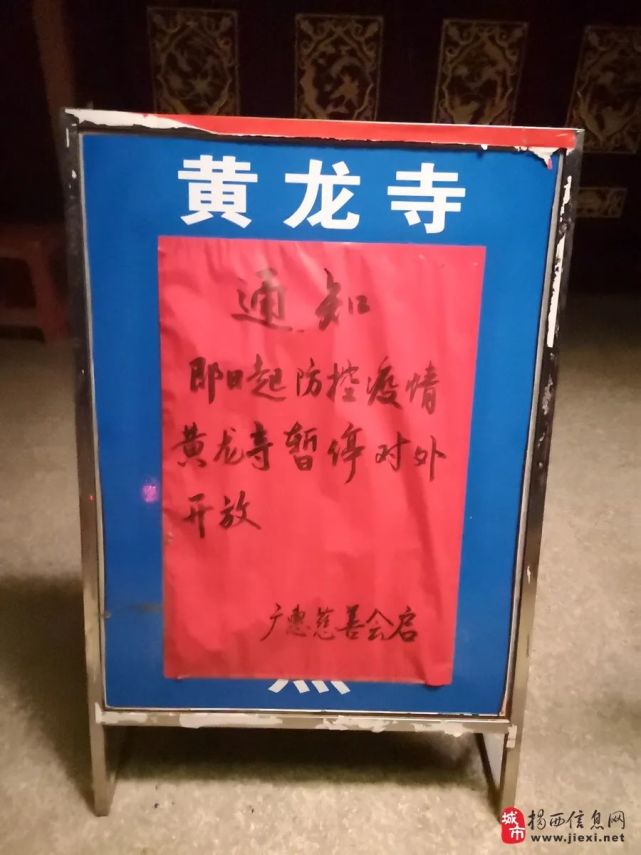 黄龙寺
通知
即日起防控疫情
黄龙寺暂停对外
开放
广惠慈善会启
城市
揭西信息网
www.jiexi.net